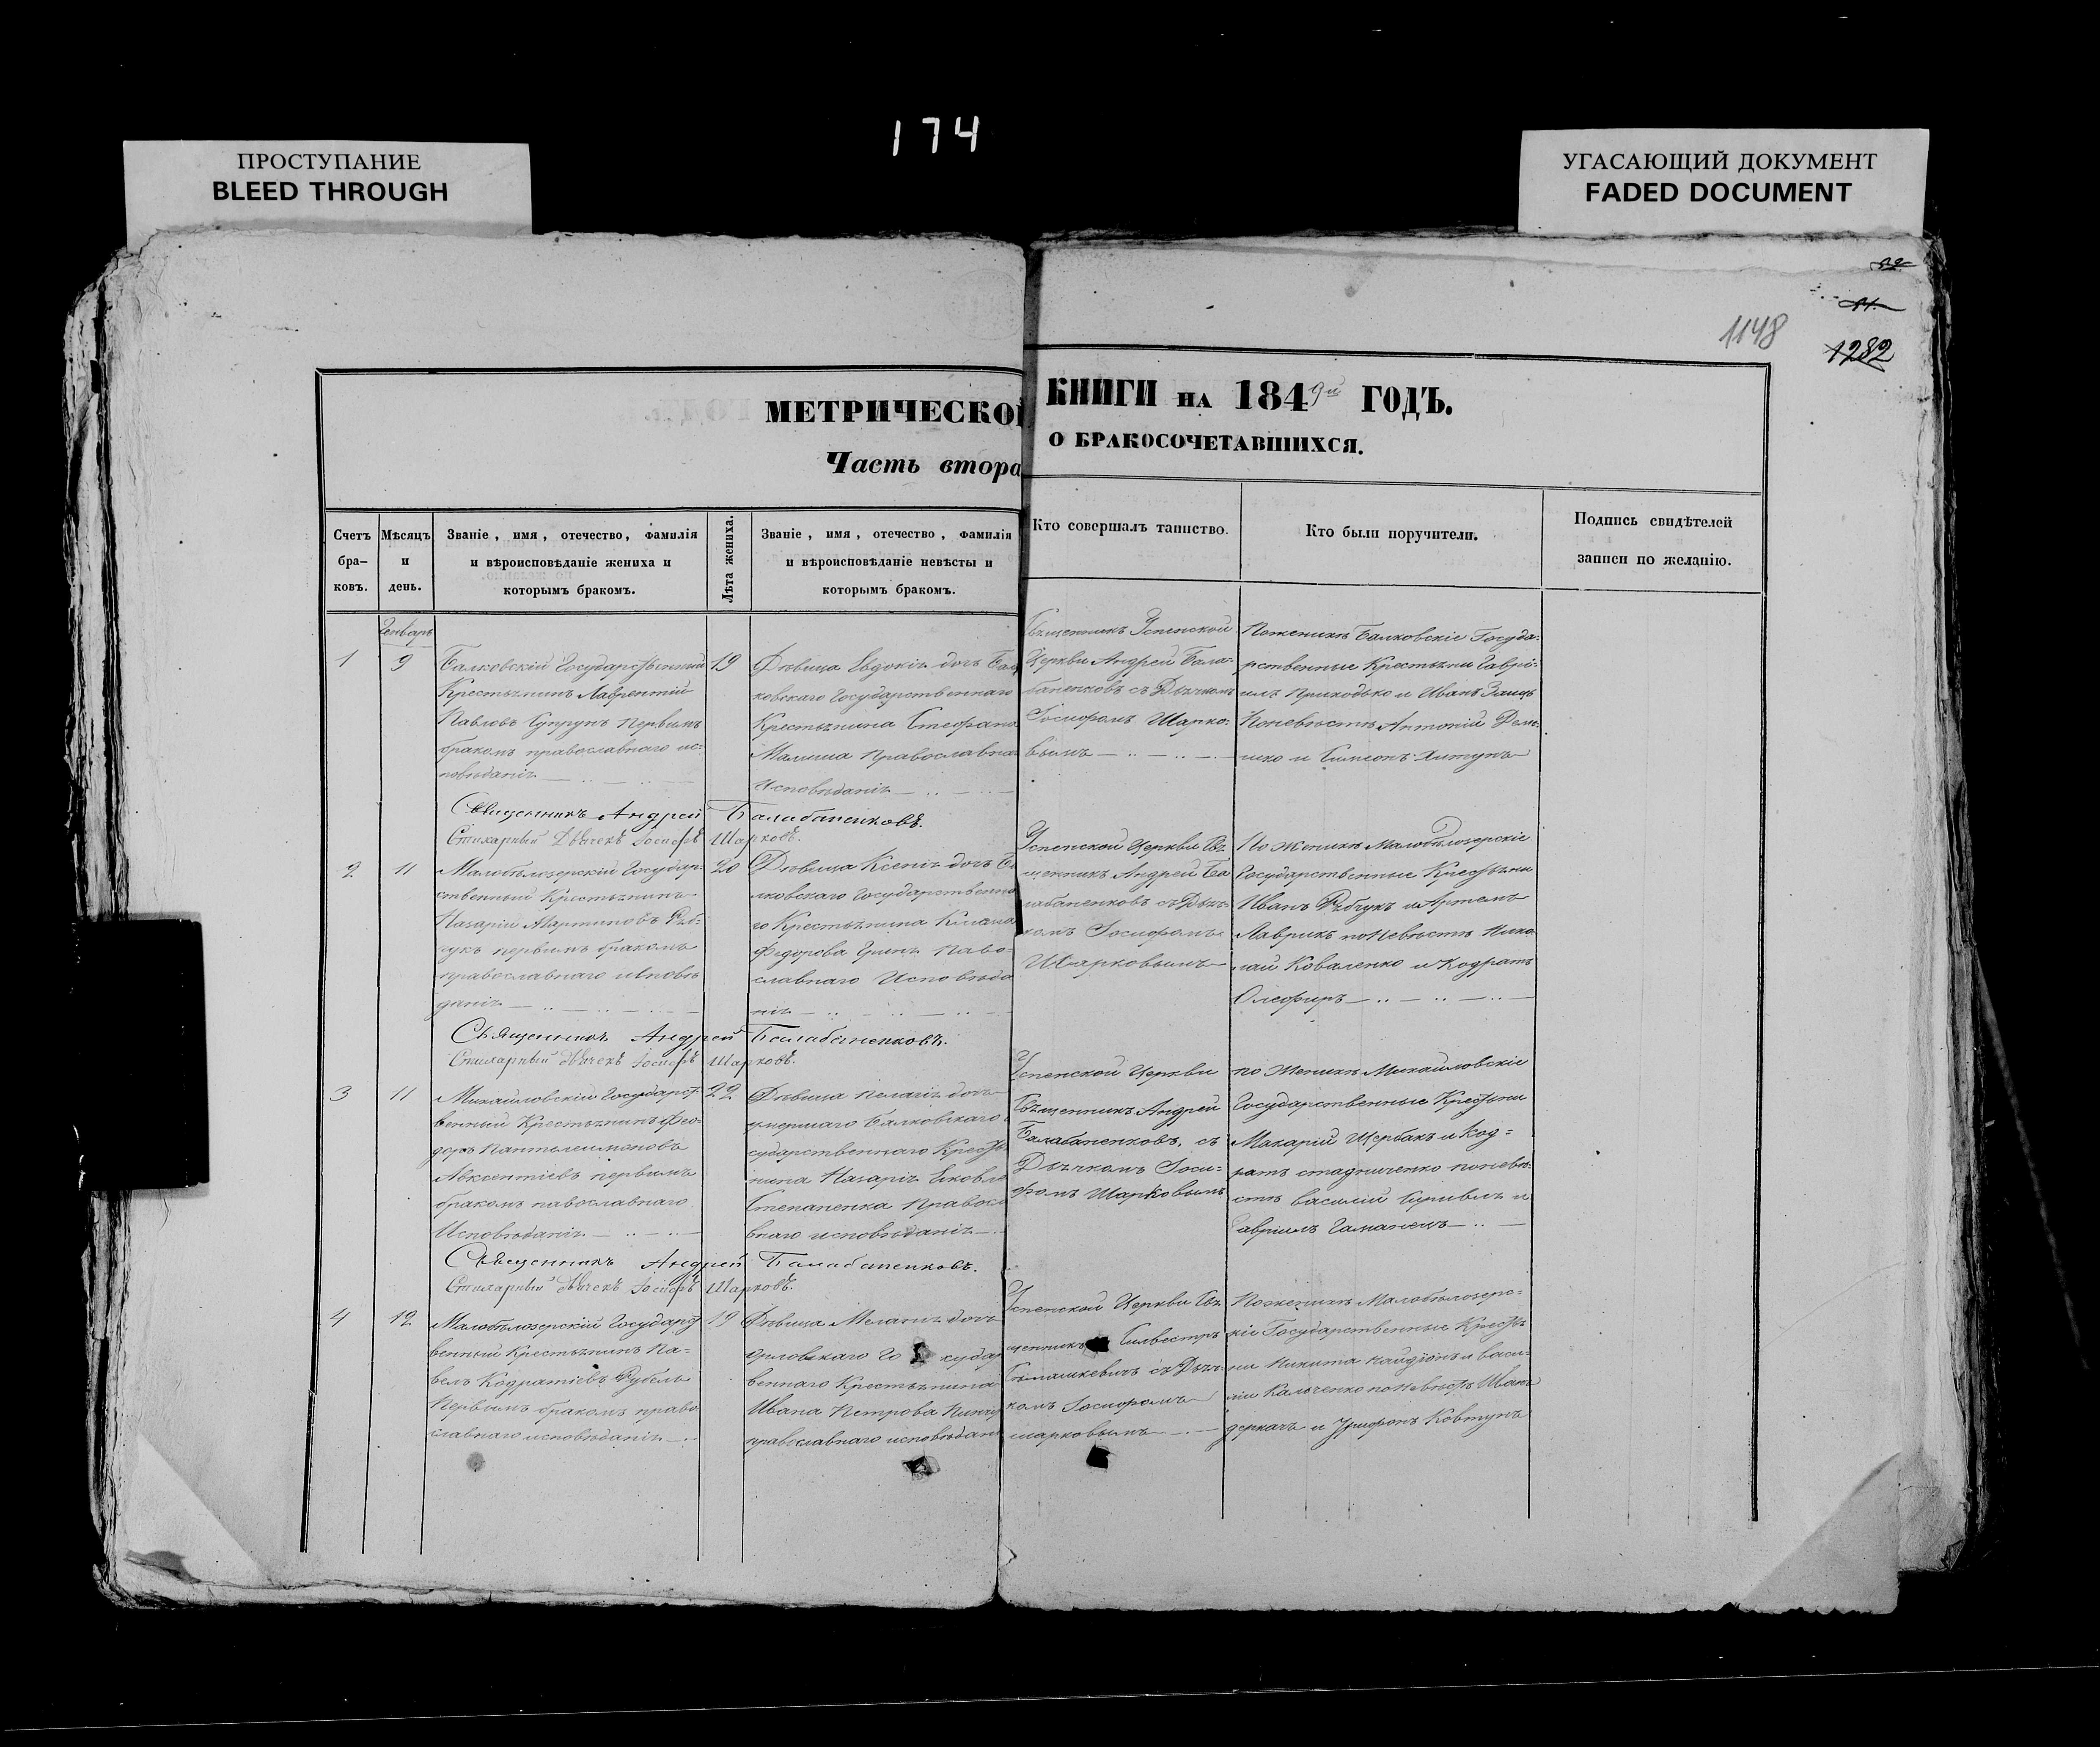 174
ПРОСТУПАНИЕ
BLEED THROUGH
УГАСАЮЩИЙ ДОКУМЕНТ
FADED DOCUMENT
1148
1282
МЕТРИЧЕСКОЙ КНИГИ НА 1849й ГОДЪ.
Часть втора О БРАКОСОЧЕТАВШИХСЯ.
Счетъ бра– ковъ.
Мѣсяцъ и день.
Званіе, имя, отечество, фамилія и вѣроисповѣданіе жениха и которымъ бракомъ.
Лѣта жениха.
Званіе, имя, отечество, фамилія и вѣроисповѣданіе невѣсты и которымъ бракомъ.
Кто совершалъ таинство.
Кто были поручители.
Подпись свидѣтелей записи по желанію.
Генварь
1
9
Балковскій Государственный
Крестьянинъ Лаврентій
Павловъ Супрунъ первымъ
бракомъ православнаго ис:
повѣданія
19
Дѣвица Евдокія дочь Бал
ковскаго Государственнаго
Крестьянина Стефана
Малиша Православна
Исповѣданія
Священникъ Успенской
Церкви Андрей Бала:
баненковъ съ Дьячкомъ
Іосифомъ Шарко:
вымъ
По женихѣ Балковскіе Госуда:
рственные Крестьяни Гаврі:
илъ Приходько и Иванъ Заецъ
По невѣстѣ Антоній
и Симеонъ
Священникъ Андрей Балабаненковъ.
Стихарный Дьячекъ Іосифъ Шарковъ.
2
11
Малобѣлозерскій Государ:
ственный Крестьянинъ
Назарій Мартиновъ Рѣб:
чукъ первымъ бракомъ
православнаго исповѣ
данія
20
Дѣвица Ксенія дочь Ба
лковскаго Государственна
го Крестьянина
Федорова Гринь Паво:
славнаго Исповѣда
нія
Успенской Церкви Свя
щенникъ Андрей Ба
лабаненковъ съ Дьяч:
комъ Іосифомъ
Шарковымъ
По Женихѣ Малобѣлозерскіе
Государственные Крестьяни
Иванъ Рѣбчукъ и Артемъ
Лаврикъ по Невѣстѣ Нико
лай Коваленко и Кодратъ
Олефиръ
Священникъ Андрей Балабаненковъ.
Стихарный Дьячекъ Іосифъ Шарковъ.
3
11
Михайловскій Государст
венный Крестьянинъ Фео:
доръ Пантелеимоновъ
Авксентіевъ первымъ
бракомъ павославнаго
Исповѣданія
22
Дѣвица Пелагія дочь
умершаго Балковскаго
сударственнаго Крестья
нина Назарія Яковле
Степаненка Правосл
внаго исповѣданія
Успенской Церкви
Священникъ Андрей
Балабаненковъ, съ
Дьячкомъ Іоси:
фомъ Шарковымъ
по Женихѣ Михайловскіе
Государственные Крестьяни
Макарій Щербакъ и Код=
ратъ Стадниченко по невѣ:
стѣ Василій и
Гавріилъ Гаманецъ
Священникъ Андрей Балабаненковъ.
Стихарный Дьячекъ Іосифъ Шарковъ.
4
12
Малобѣлозерскій Государст
венный Крестьянинъ Па=
велъ Кодратіевъ Рубель
Первымъ бракомъ право
славнаго исповѣданія
19
Дѣвица Меланія дочь
Орловскаго Го судар
веннаго Крестьянина
Ивана Петрова
православнаго исповѣдані
Успенской Церкви Свя
щенникъ Силвестръ
съ Дьяч:
комъ Іосифомъ
шарковымъ
По женихѣ Малобѣлозерс=
кіе Государственные Крестья
ни Никита и Васи:
лій Кальченко по Невѣстѣ Иванъ
деркачъ и Ковтунъ